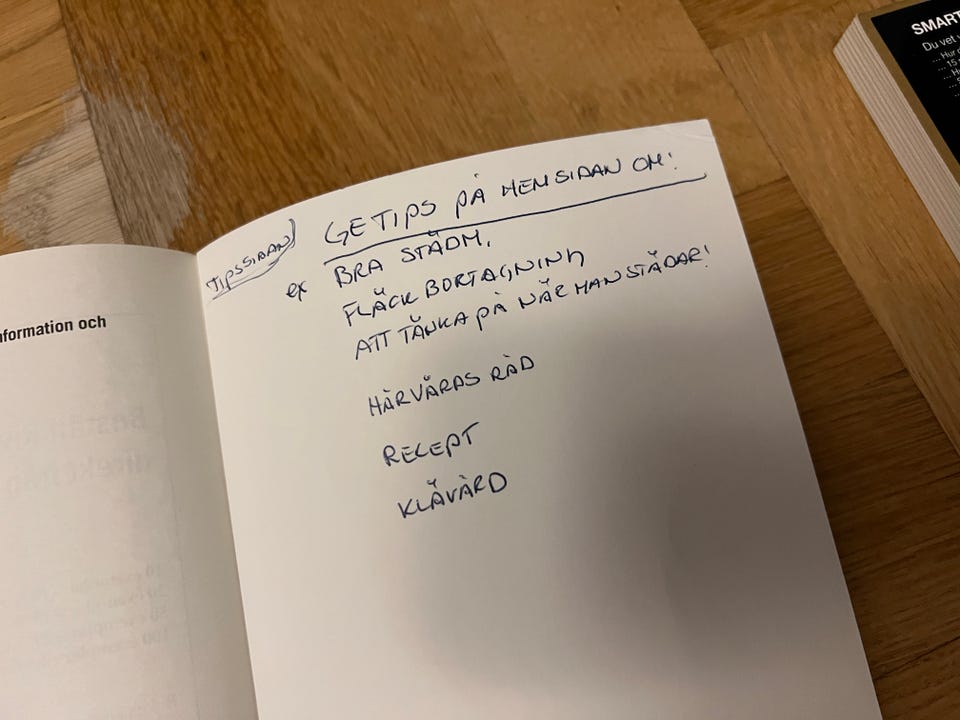 nformation och
TIPSSIDAN)
GE TIPS PÅ HEMSIDAN OM:
ex BRA STÄDM.
FLÄCK BORTAGNING
ATT TÄNKA PÅ NÄR MAN STÄDAR!
HÅRVÅRAS RÅD
RECEPT
KLÄVÅRD
SMART
Du vet v
... Hur
... 15